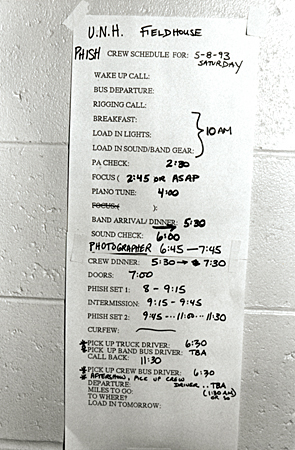 U.N.H. FIELDHOUSE
PHISH CREW SCHEDULE FOR: 5-8-93
SATURDAY
WAKE UP CALL:
BUS DEPARTURE:
RIGGING CALL:
BREAKFAST:
LOAD IN LIGHTS: 10 AM
LOAD IN SOUND/BAND GEAR:
PA CHECK: 2:30
FOCUS ( 2:45 OR ASAP
PIANO TUNE: 4:00
FOCUS ( ):
BAND ARRIVAL/ DINNER: 5:30
SOUND CHECK: 6:00
PHOTOGRAPHER 6:45 — 7:45
CREW DINNER: 5:30 → 7:30
DOORS: 7:00
PHISH SET 1: 8 - 9:15
INTERMISSION: 9:15 - 9:45
PHISH SET 2: 9:45 ... 11:00 ... 11:30
CURFEW:
* PICK UP TRUCK DRIVER: 6:30
* PICK UP BAND BUS DRIVER: TBA
CALL BACK: 11:30
* PICK UP CREW BUS DRIVER: 6:30
* AFTERSHOW, PICK UP CREW
DEPARTURE: DRIVER .. TBA
MILES TO GO: (1:30 AM
TO WHERE? OR SO
LOAD IN TOMORROW: